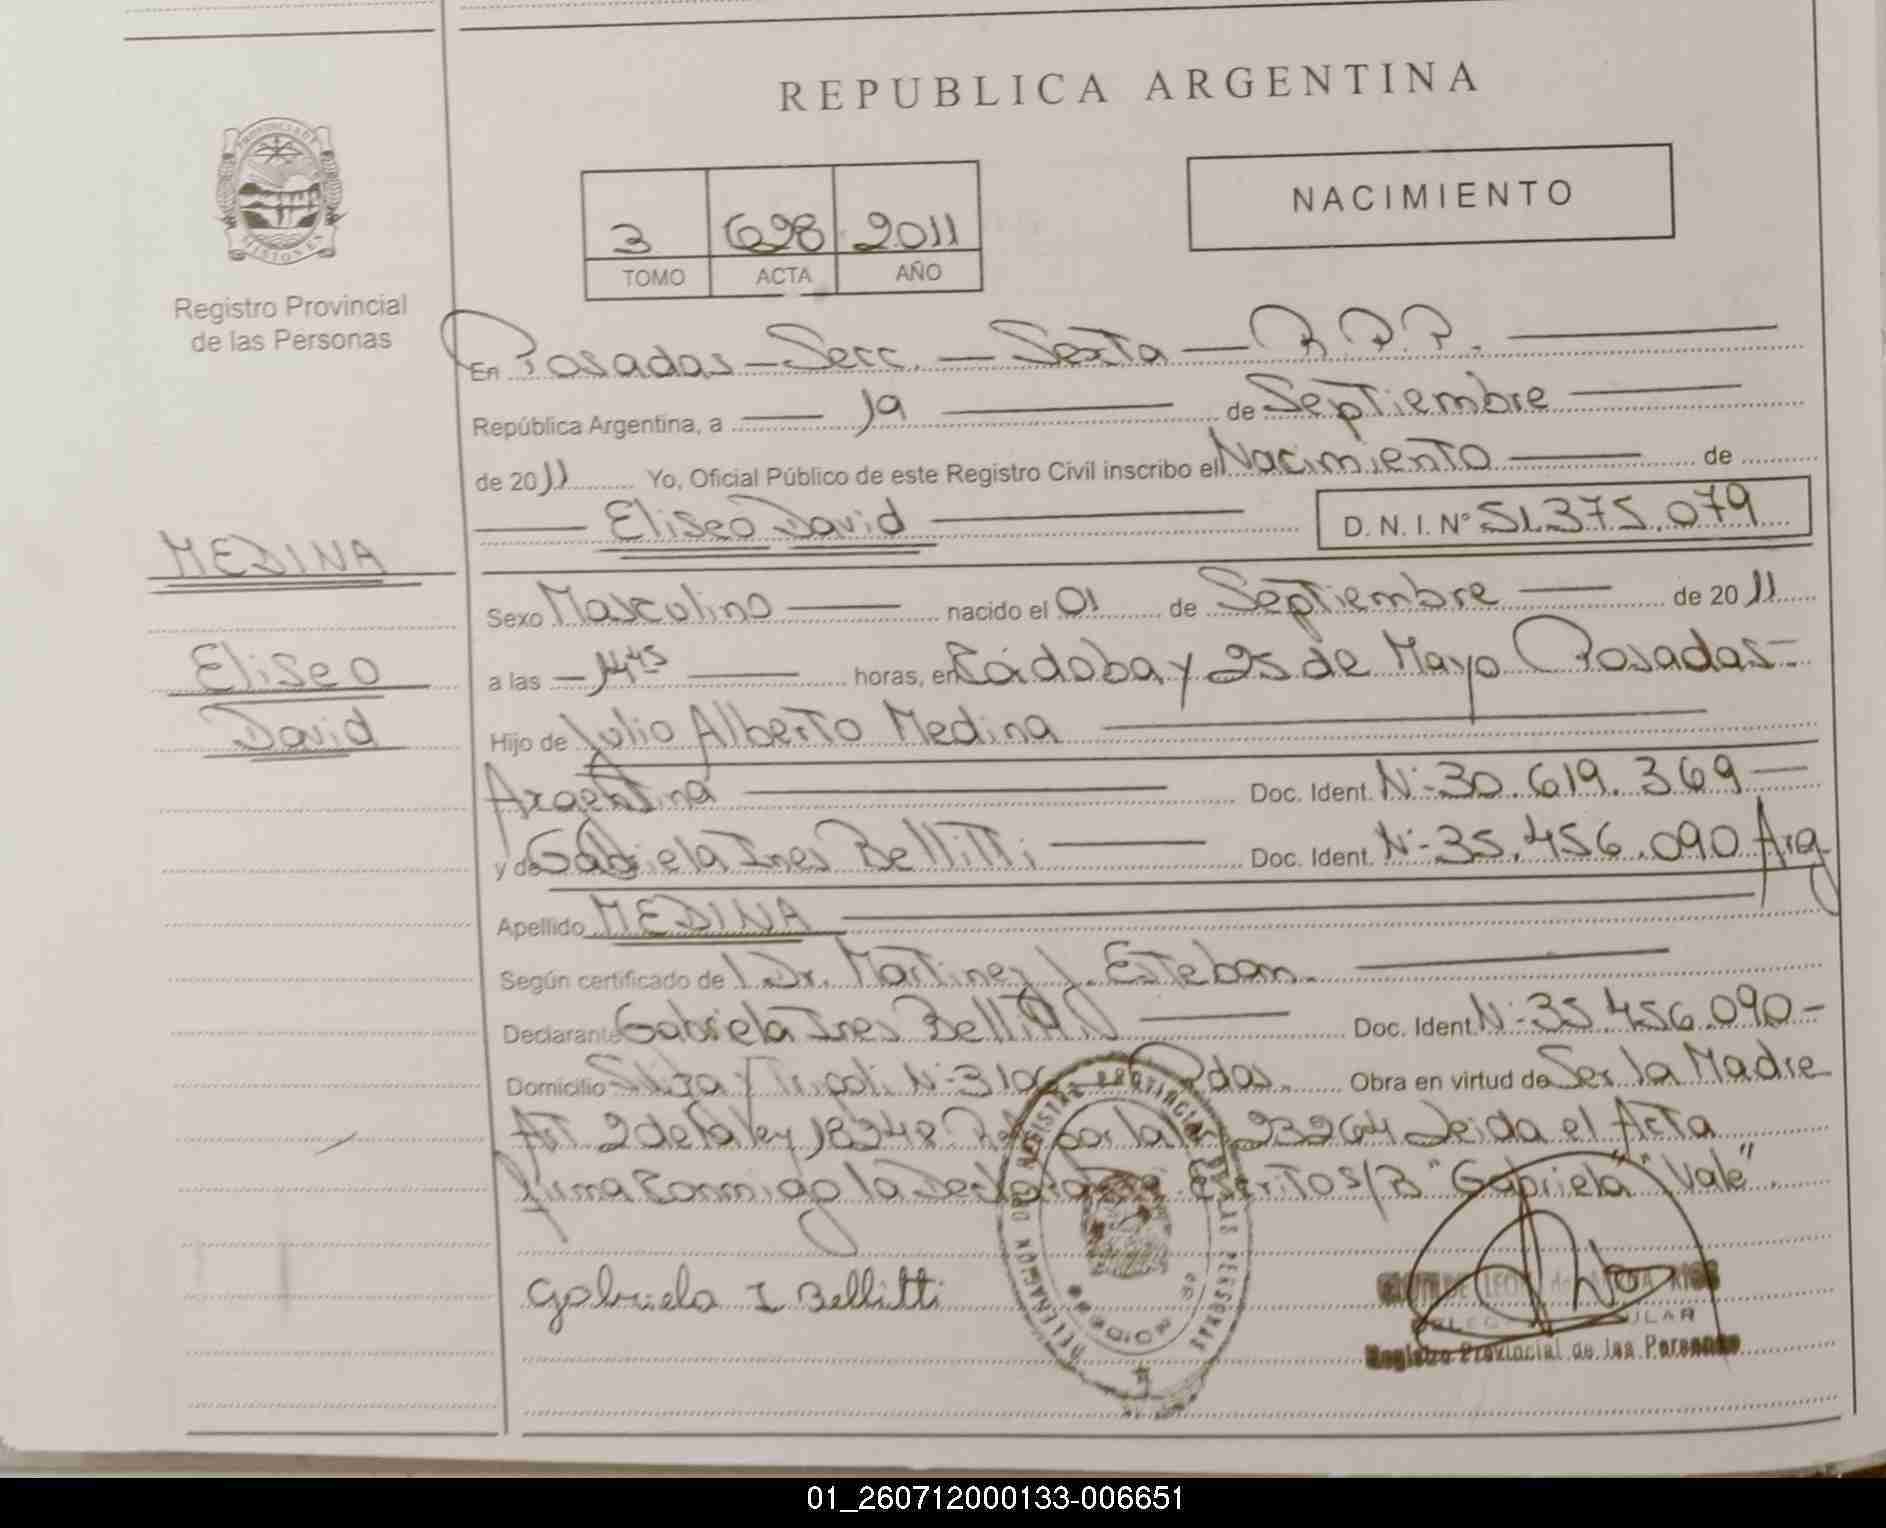 REPUBLICA ARGENTINA
NACIMIENTO
3 628 2011
TOMO ACTA AÑO
PROVINCIA DE MISIONES
Registro Provincial
de las Personas
En Posadas - Secc. - Sexta - R.P.P.
República Argentina, a 19 de Septiembre
de 2011 Yo, Oficial Público de este Registro Civil inscribo el Nacimiento de
Eliseo David D. N. I. Nº 51.375.079
MEDINA
Eliseo
David
Sexo Masculino nacido el 01 de Septiembre de 2011
a las - 14:45 horas, en Córdoba y 25 de Mayo Posadas-
Hijo de Julio Alberto Medina
Argentina Doc. Ident. Nº 30.619.369
y de Gabriela Ines Bellitti Doc. Ident. Nº 35.456.090 Arg
Apellido MEDINA
Según certificado de Dr. Martinez J. Esteban.
Declarante Gabriela Ines Bellitti Doc. Ident. Nº 35.456.090-
Domicilio y Tripoli Nº Pdas. Obra en virtud de Ser la Madre
Art 2 de la ley 18248 por la ley 23264 Leida el Acta
firma Conmigo la Declarante Escrito S/B "Gabriela" "Vale".
Gabriela I Bellitti
REGISTRO PROVINCIAL DE LAS PERSONAS
DELEGACION
Registro Provincial de las Personas
01_260712000133-006651